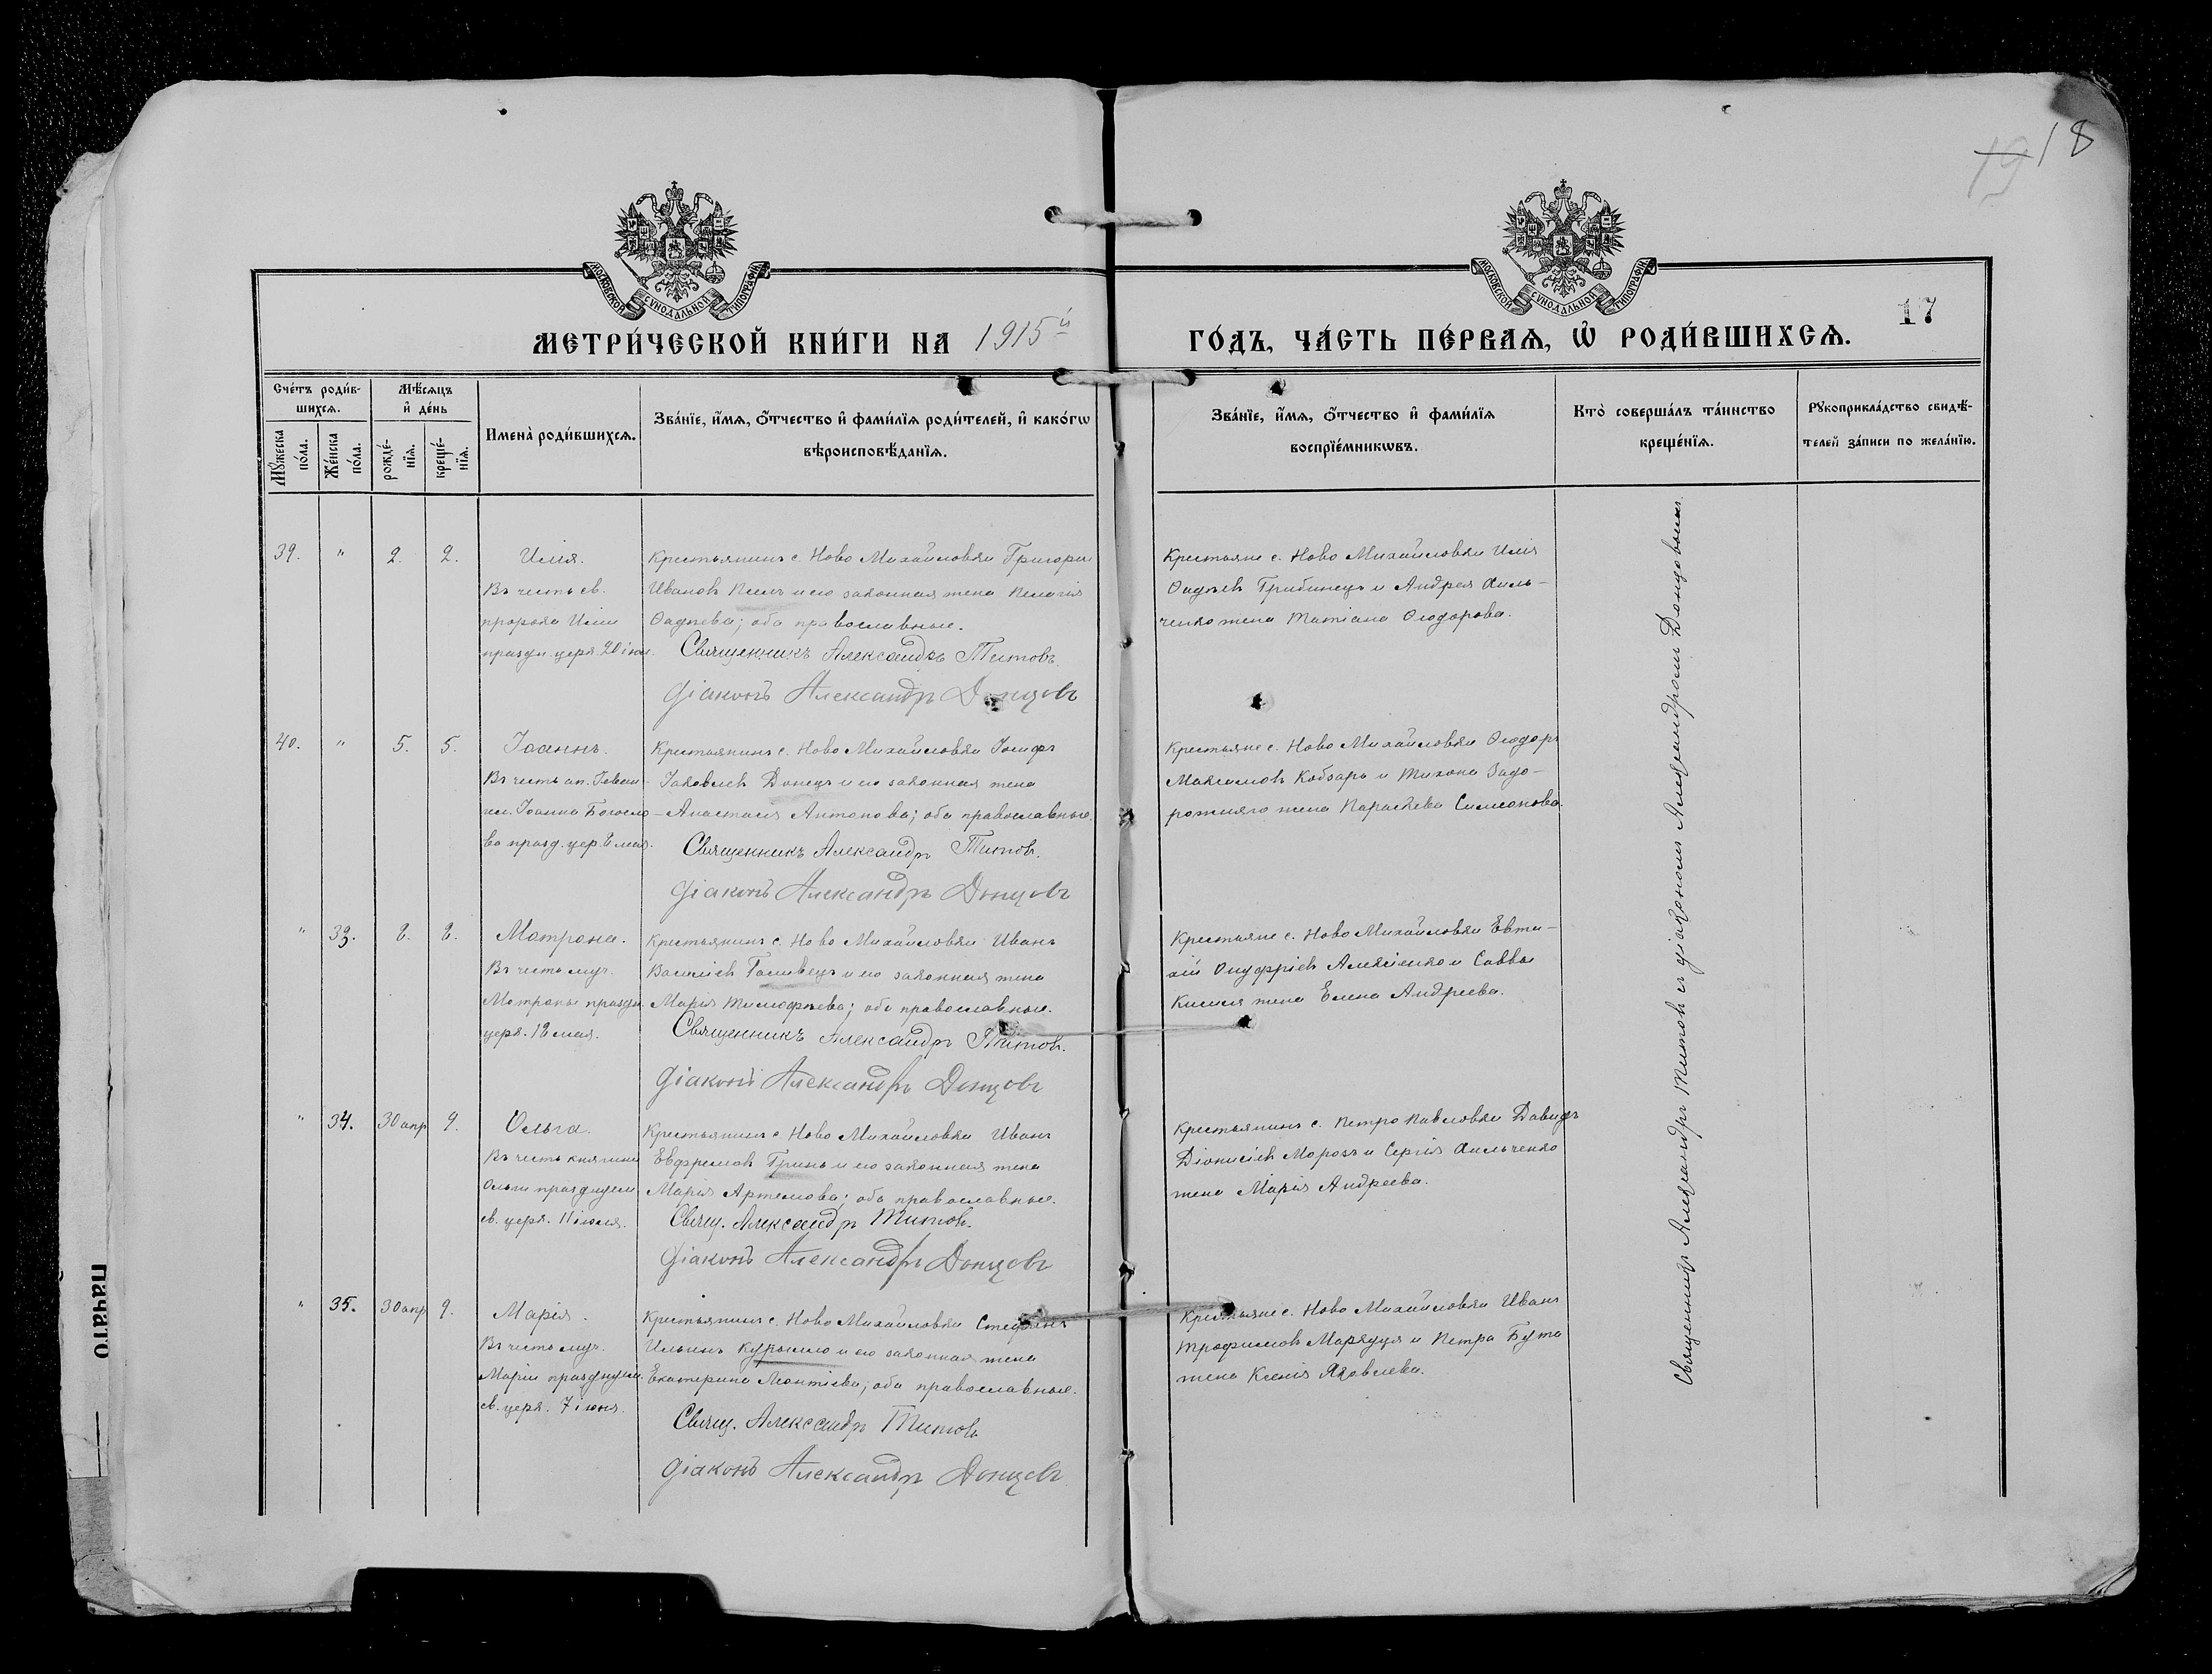 1918
МОСКОВСКОЙ СѴНОДАЛЬНОЙ ТИПОГРАФІИ
МОСКОВСКОЙ СѴНОДАЛЬНОЙ ТИПОГРАФІИ
17
МЕТРИ́ЧЕСКОЙ КНИ́ГИ НА 1915й
ГО́ДЪ, ЧА́СТЬ ПЕ́РВАѦ, Ѡ҆ РОДИ́ВШИХСѦ.
Сче́тъ роди́в-
шихсѧ.
Мѣ́сѧцъ
и҆ де́нь
Мꙋ́жеска
по́ла.
Же́нска
по́ла.
рожде́-
нїѧ.
креще́-
нїѧ.
Имена̀ роди́вшихсѧ.
Зва́нїе, и҆́мѧ, ѻ҆́тчество и҆ фами́лїѧ роди́телей, и҆ како́гѡ
вѣроисповѣ́данїѧ.
Зва́нїе, и҆́мѧ, ѻ҆́тчество и҆ фами́лїѧ
воспрїе́мникѡвъ.
Кто̀ соверша́лъ та́инство
креще́нїѧ.
Рꙋкоприкла́дство свидѣ́-
телей за́писи по жела́нїю.
39. " 2. 2. Илія.
Въ честь св.
пророка Иліи
праздн. церк. 20 іюл.
Крестьянинъ с. Ново Михайловки Григорій
Ивановъ и его законная жена Пелагія
Фадѣева; оба православные.
Священникъ Александръ Титовъ
Діаконъ Александръ Донцовъ
Крестьяне с. Ново Михайловки Илія
Фадѣевъ Грибинецъ и Андрея Хиль-
ченко жена Татіана Ѳеодорова.
40. " 5. 5. Іоаннъ.
Въ честь ап. Іеван-
гел. Іоанна Богосло-
ва празд. цер. 8 мая.
Крестьянинъ с. Ново Михайловки Іосифъ
Іаковлевъ Донецъ и его законная жена
Анастасія Антонова; оба православные.
Священникъ Александръ Титовъ.
Діаконъ Александръ Донцовъ
Крестьяне с. Ново Михайловки Ѳеодоръ
Максимовъ Кобзарь и Тихона Задо-
рожняго жена Параскева Симеонова.
" 33. 8. 8. Матрона.
Въ честь муч.
Матроны праздн.
церк. 18 мая.
Крестьянинъ с. Ново Михайловки Иванъ
Василіевъ Голивецъ и его законная жена
Марія Тимофѣева; оба православные.
Священникъ Александръ Титовъ.
Діаконъ Александръ Донцовъ
Крестьяне с. Ново Михайловки Евти-
хій Онуфріевъ Алексіенко и Саввы
жена Елена Андреева.
" 34. 30 апр 9. Ольга.
Въ честь княгини
Ольги празднуем.
св. церк. 11 іюля.
Крестьянинъ с. Ново Михайловки Иванъ
Евфремовъ Гринь и его законная жена
Марія Артемова; оба православные.
Свящ. Александръ Титовъ.
Діаконъ Александръ Донцовъ
Крестьянинъ с. Петро Павловки Давидъ
Діонисіевъ Морозъ и Сергія Хильченко
жена Марія Андреева.
" 35. 30 апр 9. Марія.
Въ честь муч.
Маріи празднуем.
св. церк. 7 іюня.
Крестьянинъ с. Ново Михайловки Стефанъ
Ильинъ Курыло и его законная жена
Екатерина Леонтіева; оба православные.
Свящ. Александръ Титовъ
Діаконъ Александръ Донцовъ
Крестьяне с. Ново Михайловки Иванъ
Трофимовъ и Петра Бута
жена Ксенія Яковлева.
Священникъ Александръ Титовъ съ діакономъ Александромъ Донцовымъ.
Начато